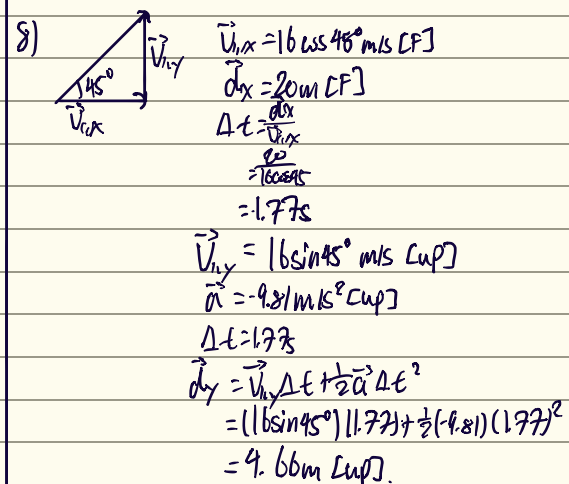 8)
45°
V⃗₁,y
V⃗₁,x
V⃗₁,x = 16cos45° m/s [F]
d⃗x = 20m [F]
Δt = d⃗x/V⃗₁,x
= 20/16cos45
= 1.77s
V⃗₁,y = 16sin45° m/s [up]
a⃗ = -9.81 m/s² [up]
Δt = 1.77s
d⃗y = V⃗₁,yΔt + ½a⃗Δt²
= (16sin45°)(1.77) + ½(-9.81)(1.77)²
= 4.66m [up].